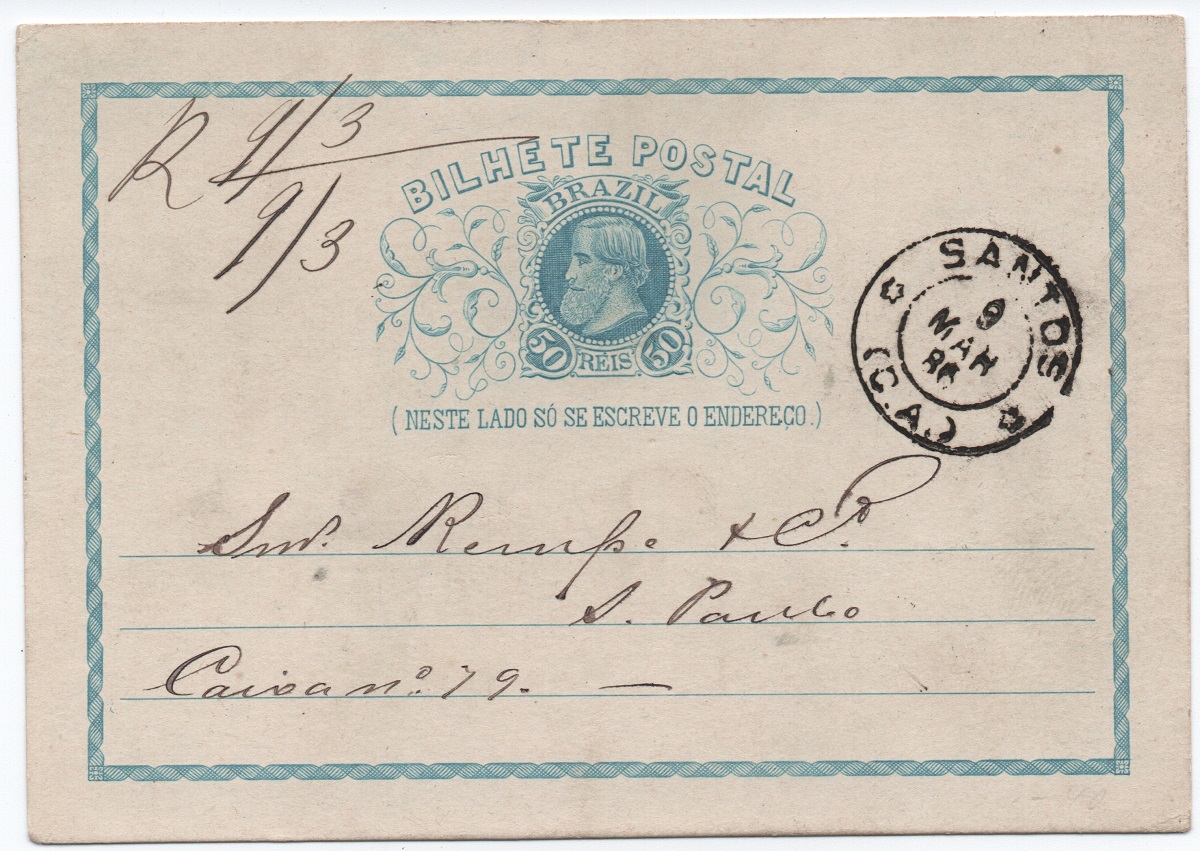 R 9/3
9/3
BILHETE POSTAL
BRAZIL
50 RÉIS 50
(NESTE LADO SÓ SE ESCREVE O ENDEREÇO.)
SANTOS
9
MAR
(C.A.)
Snrs. Rempe & Cª
S. Paulo
Caixa nº 79. —